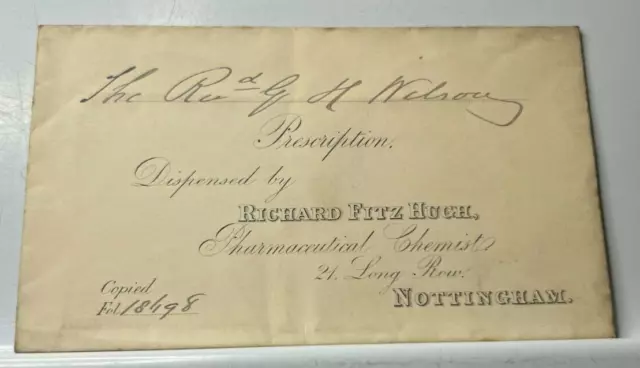 The Revd G H Wilson
Prescription.
Dispensed by
RICHARD FITZ HUGH,
Pharmaceutical Chemist
21. Long Row.
NOTTINGHAM.
Copied
Fol. 18498